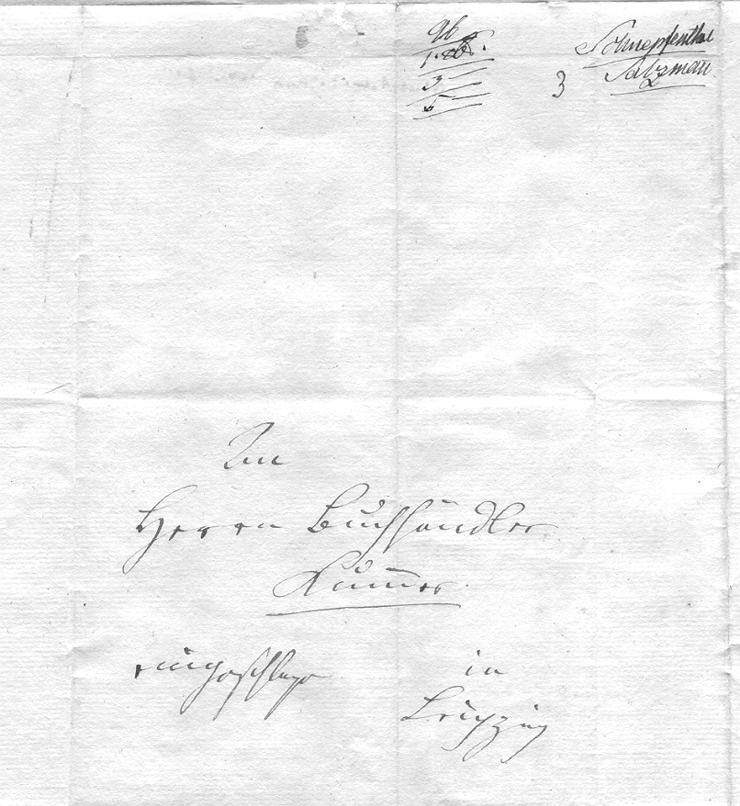 96
3 Schnepfenthal
3 Salzman
5
An
Herrn Buchhändler
Kummer
eingeschlagen
in
Leipzig